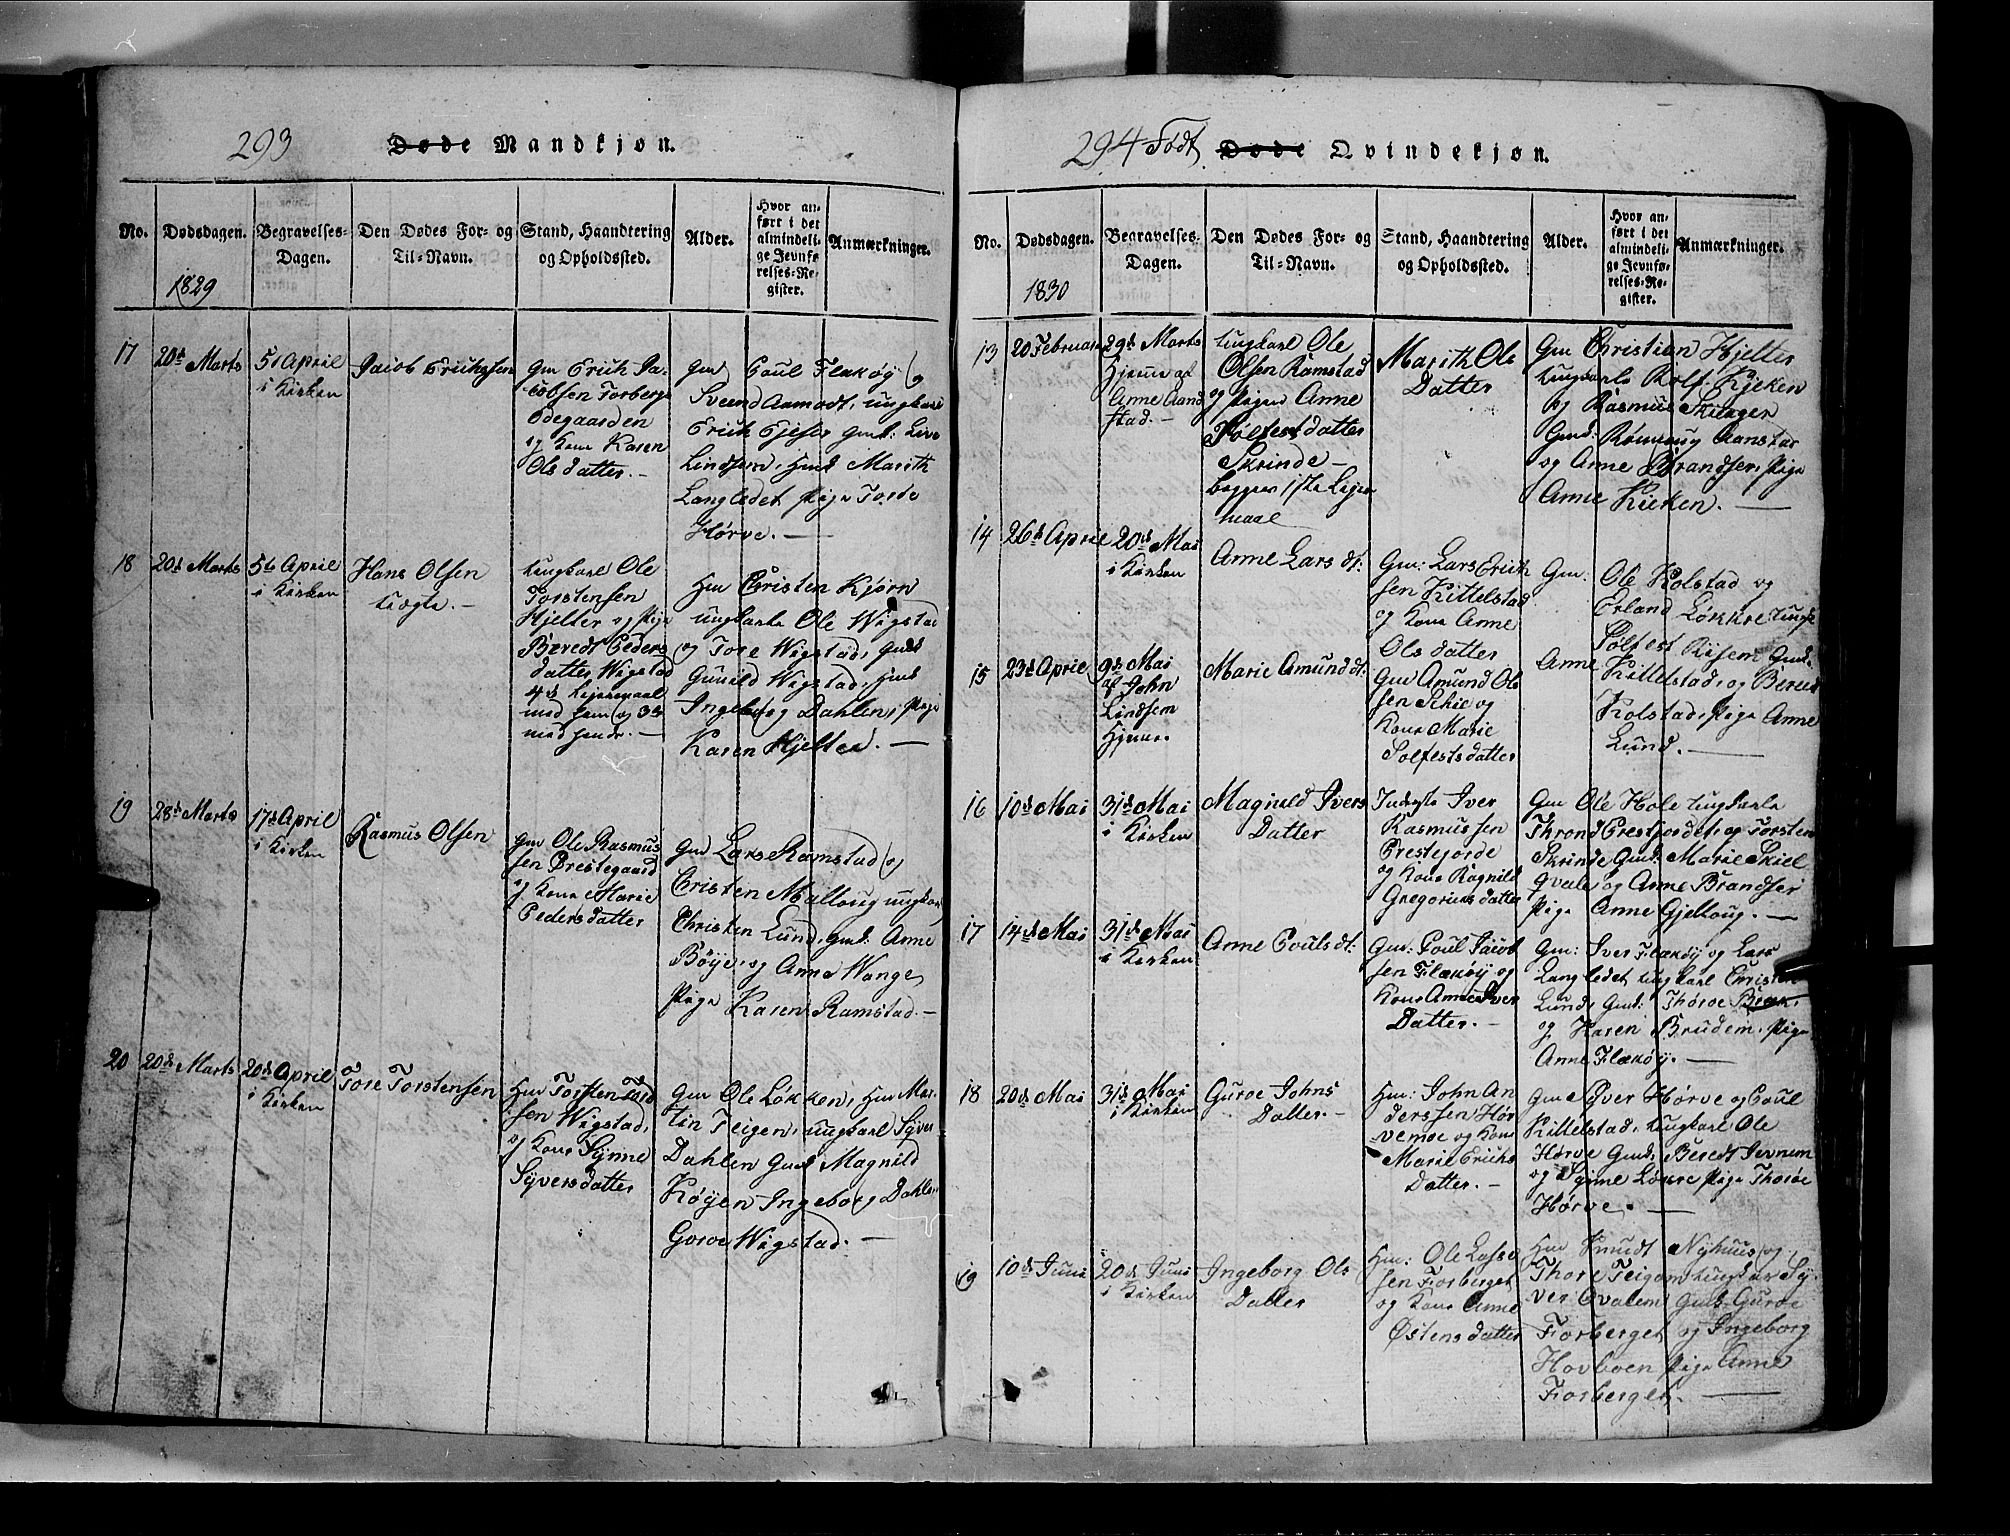 293
Døde Mandkjøn.
No.
Dødsdagen.
1829
Begravelses-
Dagen.
Den Dødes For- og
Til-Navn.
Stand, Haandtering
og Opholdssted.
Alder.
Hvor an-
ført i det
almindeli-
ge Jevnfø-
relses-Re-
gister.
Anmærkninger.
17
20de Marts
5te April
i Kirken
Jacob Erichssen
Gm Erich Ja-
cobsen Forbergs
Ødegaarden
og Kone Karen
Olsdatter. —
Gmd Poul Flækøy og
Svend Aamodt, ungkarl
Erich Gmd: Live
Lindsem, Hmd Marith
Langledet Pige Tore
Hørve. —
18
20de Marts
5te April
i Kirken
Hans Olsen
Uægte. —
Ungkarl Ole
Torstensen
Hjelter og Pige
Beredt Peders
datter Wigstad
4de Leiermaal
med ham og 3de
med hende. —
Hm Christen Kjørn
ungkarle Ole Wigstad
og Tore Wigstad, Gmd
Gunild Wigstad, Hmd
Ingeborg Dahlen, Pige
Karen Hjelter. —
19
28de Marts
17de April
i Kirken
Rasmus Olsen
Gm Ole Rasmus
sen Prestegaard
og Kone Marie
Pedersdatter
Gm Lars Ramstad og
Christen Malloug ungkarl
Christen Lund, Gmd: Anne
Bøye, og Anne Wange,
Pige Karen Ramstad. —
20
20de Marts
20de April
i Kirken
Tore Torstensen
Hm Torsten Tord
sen Wigstad,
og Kone Synne
Syversdatter
Gm Ole Løkken, Hm Mar-
tin Teigen, ungkarl Syver
Dahlen Gmd Magnild
Køyen Ingeborg Dahlen
Goroe Wigstad. —
294 Født
Døde Qvindekjøn.
No.
Dødsdagen.
1830
Begravelses-
Dagen.
Den Dødes For- og
Til-Navn.
Stand, Haandtering
og Opholdssted.
Alder.
Hvor an-
ført i det
almindeli-
ge Jevnfø-
relses-Re-
gister.
Anmærkninger.
13
20 Februar
29de Marts
Hjeme af
Anne Aand
stad. —
Ungkarl Ole
Olsen Ramstad
og Pigen Anne
Pølfestsdatter
Skrinde —
begges 1ste Leier
maal
Marith Ols
Datter
Gm Christian Hjelter
Ungkarle Rolf Kjeken
og Rasmus Skitager
Gmd: Rømoug Aanstad
og Anne Brandser, Pige
Anne Kieken. —
14
26de April
20de Mai
i Kirken
Anne Lars dt:
Gm: Lars Erich
sen Kittelstad
og Kone Anne
Olsdatter
Gm: Ole Kolstad og
Erland Løkkre Ungk
Pølfest Risem Gmd.
Anne Kittelstad, og Beredt
Kolstad, Pige Anne
Lund. —
15
23de April
9de Mai
af John
Lindsem
Hjeme.
Marie Amund dt:
Gm Amund Ol
sen Skie og
Kone Marie
Solfestsdatter
16
10de Mai
31de Mai
i Kirken
Magnild Ivers
Datter
Inderste Iver
Rasmussen
Prestejorde
og Kone Ragnild
Gregoriusdatter
Gm Ole Hole Ungkarle
Thrond Prestjordet, og Torsten
Skrinde Gmd: Marie Skiel
qvale, og Anne Brandser
Pige Anne Gjelloug. —
17
14de Mai
31de Mai
i Kirken
Anne Pouls dt:
Gm: Poul Jacob
sen Flækøy og
Kone Anne Iver
Datter. —
Gm: Iver Flækøy og Lars
Langledet Ungkarl Christen
Lund, Gmd: Thoroe Bræk,
og Karen Brudem, Pige
Anne Flækøy. —
18
20de Mai
31de Mai
i Kirken
Guroe Johns
Datter. —
Hm: John An
derssen Hør
vemoe og Kone
Marie Erichs
Datter. —
Gm Iver Hørve og Poul
Kittelstad, Ungkarl Ole
Hørve Gmd: Beredt Sevnem
og Synne Løkre Pige Thoroe
Hørve. —
19
10de Juni
20de Juni
i Kirken
Ingeborg Ols
Datter
Hm: Ole Lasse
sen Forberget
og Kone Anne
Østensdatter
Hm Knudt Nyhuus og
Thore Teigom Ungkar Sy
ver Qvalem Gmd: Guroe
Forberget og Ingeborg
Hovboen Pige Anne
Forberget. —